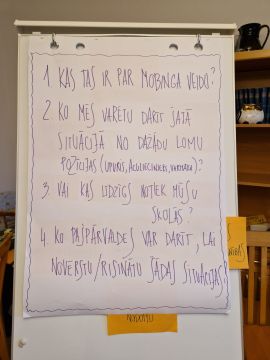 1. KAS TAS IR PAR MOBINGA VEIDU?
2. KO MĒS VARĒTU DARĪT ŠAJĀ
SITUĀCIJĀ NO DAŽĀDU LOMU
POZĪCIJAS (UPURIS, AGRESORS, VARMĀKA)?
3. VAI KAS LĪDZĪGS NOTIEK MŪSU
SKOLĀS?
4. KO PAŠPĀRVALDES VAR DARĪT, LAI
NOVĒRSTU/RISINĀTU ŠĀDAS SITUĀCIJAS?